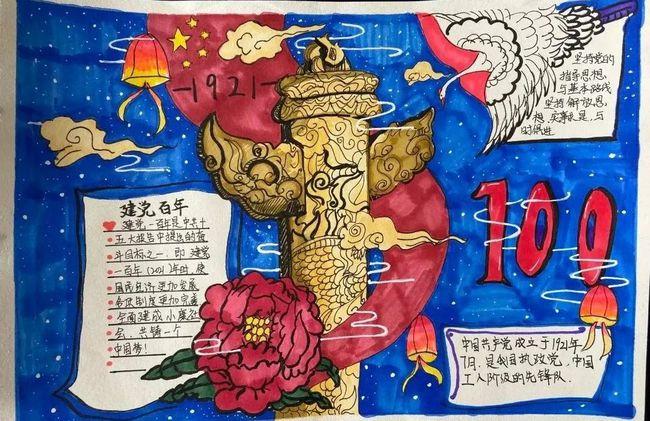 -1921-
坚持党的
指导思想,
与基本路线
坚持解放思
想,实事求是,与
时俱进
100
建党百年
建党一百年是中共十
五大报告中提出的奋
斗目标之一,即建党
一百年(2021)年时,使
国民经济更加发展
各项制度更加完善
全面建成小康社
会,共铸一个
中国梦!
中国共产党成立于1921年
7月,是我国执政党,中国
工人阶级的先锋队.